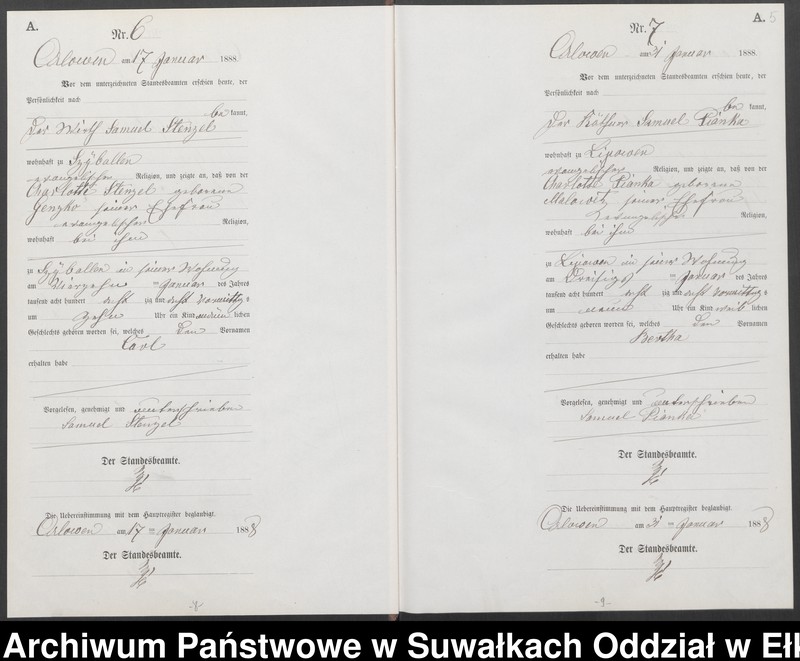 A.
Nr. 6
Orlowen am 17 Januar 1888.
Vor dem unterzeichneten Standesbeamten erschien heute, der
Persönlichkeit nach
be kannt,
der Wirth Samuel Stenzel
wohnhaft zu Szyballen
evangelischer Religion, und zeigte an, daß von der
Charlotte Stenzel geborene
seiner Ehefrau
evangelischer Religion,
wohnhaft bei ihm
zu Szyballen in seiner Wohnung
am vierzehn ten Januar des Jahres
tausend acht hundert acht zig und acht Vormittags
um zehn Uhr ein Kind männ lichen
Geschlechts geboren worden sei, welches den Vornamen
Carl
erhalten habe
Vorgelesen, genehmigt und unterschrieben
Samuel Stenzel
Der Standesbeamte.
Die Uebereinstimmung mit dem Hauptregister beglaubigt.
Orlowen am 17 ten Januar 1888
Der Standesbeamte.
-8-
A. 5
Nr. 7
Orlowen am 31 Januar 1888.
Vor dem unterzeichneten Standesbeamten erschien heute, der
Persönlichkeit nach
be kannt,
der Käthner Samuel Pianka
wohnhaft zu Lipowen
evangelischer Religion, und zeigte an, daß von der
Charlotte Pianka geborene
seiner Ehefrau
evangelischer Religion,
wohnhaft bei ihm
zu Lipowen in seiner Wohnung
am ten Januar des Jahres
tausend acht hundert acht zig und acht Vormittags
um neun Uhr ein Kind weib lichen
Geschlechts geboren worden sei, welches den Vornamen
Bertha
erhalten habe
Vorgelesen, genehmigt und unterschrieben
Samuel Pianka
Der Standesbeamte.
Die Uebereinstimmung mit dem Hauptregister beglaubigt.
Orlowen am 31 ten Januar 1888
Der Standesbeamte.
-9-
Archiwum Państwowe w Suwałkach Oddział w Ełk